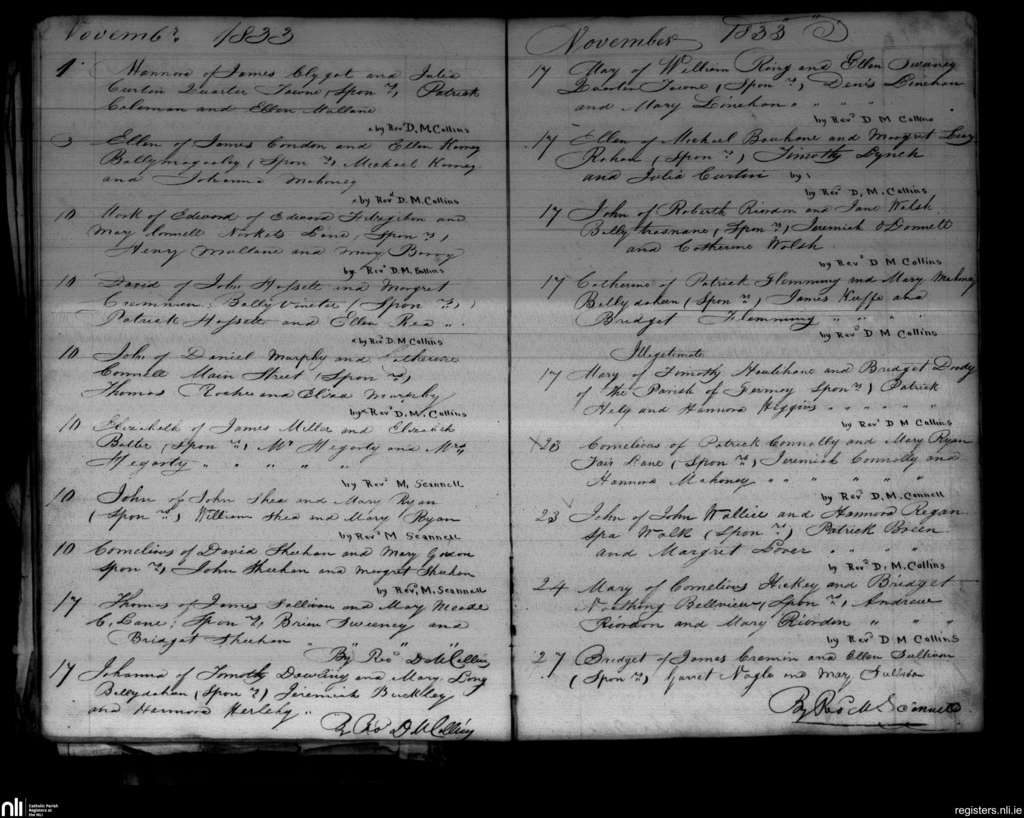 Novembr. 1833
1 Hannora of James Clygot and Julia
Curtin Quarter Towne (Sponrs) Patrick
Coleman and Ellen Mullane
by Revd D. M. Collins
3 Ellen of James Condon and Ellen
Ballymagooly (Sponrs) Michael
and Johanna Mahoney
by Revd D. M. Collins
10 of Edward of Edward Fitzgibbon and
Mary Connell Lane, Sponrs,
Henry Mullane and Mary Barry
by Revd D. M. Collins
10 David of John Hassett and Margret
Cremmin, (Sponrs)
Patrick Hassett and Ellen Rea " .
by Revd D. M. Collins
10 John of Daniel Murphy and Catherine
Connell Main Street (Sponrs)
Thomas Roche and Murphy
by Revd D. M. Collins
10 Elizabeth of James Miller and Elizabeth
Batter (Sponrs) Mr Hegorty and Mrs
Hegorty " " " " "
by Revd M. Scannell
10 John of John Shea and Mary Ryan
(Sponrs) William Shea and Mary Ryan
by Revd M Scannell
10 Cornelious of David Sheehan and Mary
Sponrs, John Sheehan and Margret Sheehan
by Revd M. Scannell
17 Thomas of James Sullivan and Mary Meade
C, Lane, Sponrs, Brien Sweeney and
Bridget Sheehan " "
By Revd D M Collins
17 Johanna of Timothy and Mary Long
Ballydahen (Sponrs) Jeremiah Buckley
and Hannora Herlehy "
By Revd D M Collins
November 1833
17 May of William Ring and Ellen Sweeney
Towne, (Sponrs) Denis Linehan
and Mary Linehan " " " "
by Revd D M Collins
17 Ellen of Michael and Margret
(Sponrs) Timothy Lynch
and Julia Curtin by
by Revd D. M. Collins
17 John of Roberth Riordon and Jane Walsh
(Sponrs) Jeremiah O Donnell
and Catherine Walsh
by Revd D M Collins
17 Catherine of Patrick Flemming and Mary Mahony
Ballydahen (Sponrs) James Keeffe and
Bridget Flemming " " "
by Revd D M Collins
Illegetimate
17 Mary of Timothy and Bridget
of the Parish of Fermoy Sponrs) Patrick
and Hannora Higgins " " " " "
by Revd D M Collins
23 Cornelious of Patrick Connolly and Mary Ryan
Fair Lane (Sponrs) Jeremiah Connolly and
Hannora Mahoney " " " " "
by Revd D. M. Connell
23 John of John Wallice and Hannora Regan
Spa Walk (Sponrs) Patrick Breen
and Margret " " " "
by Revd D, M. Collins
24 Mary of Cornelious Hickey and Bridget
Bellview, Sponrs, Andrew
Riordon and Mary Riordon " " "
by Revd D M Collins
27 Bridget of James Cremin and Ellen Sullivan
(Sponrs) Garret Nagle and Mary Sullivan
By Revd M Scannell
nli
Catholic Parish
Registers at
the NLI
registers.nli.ie